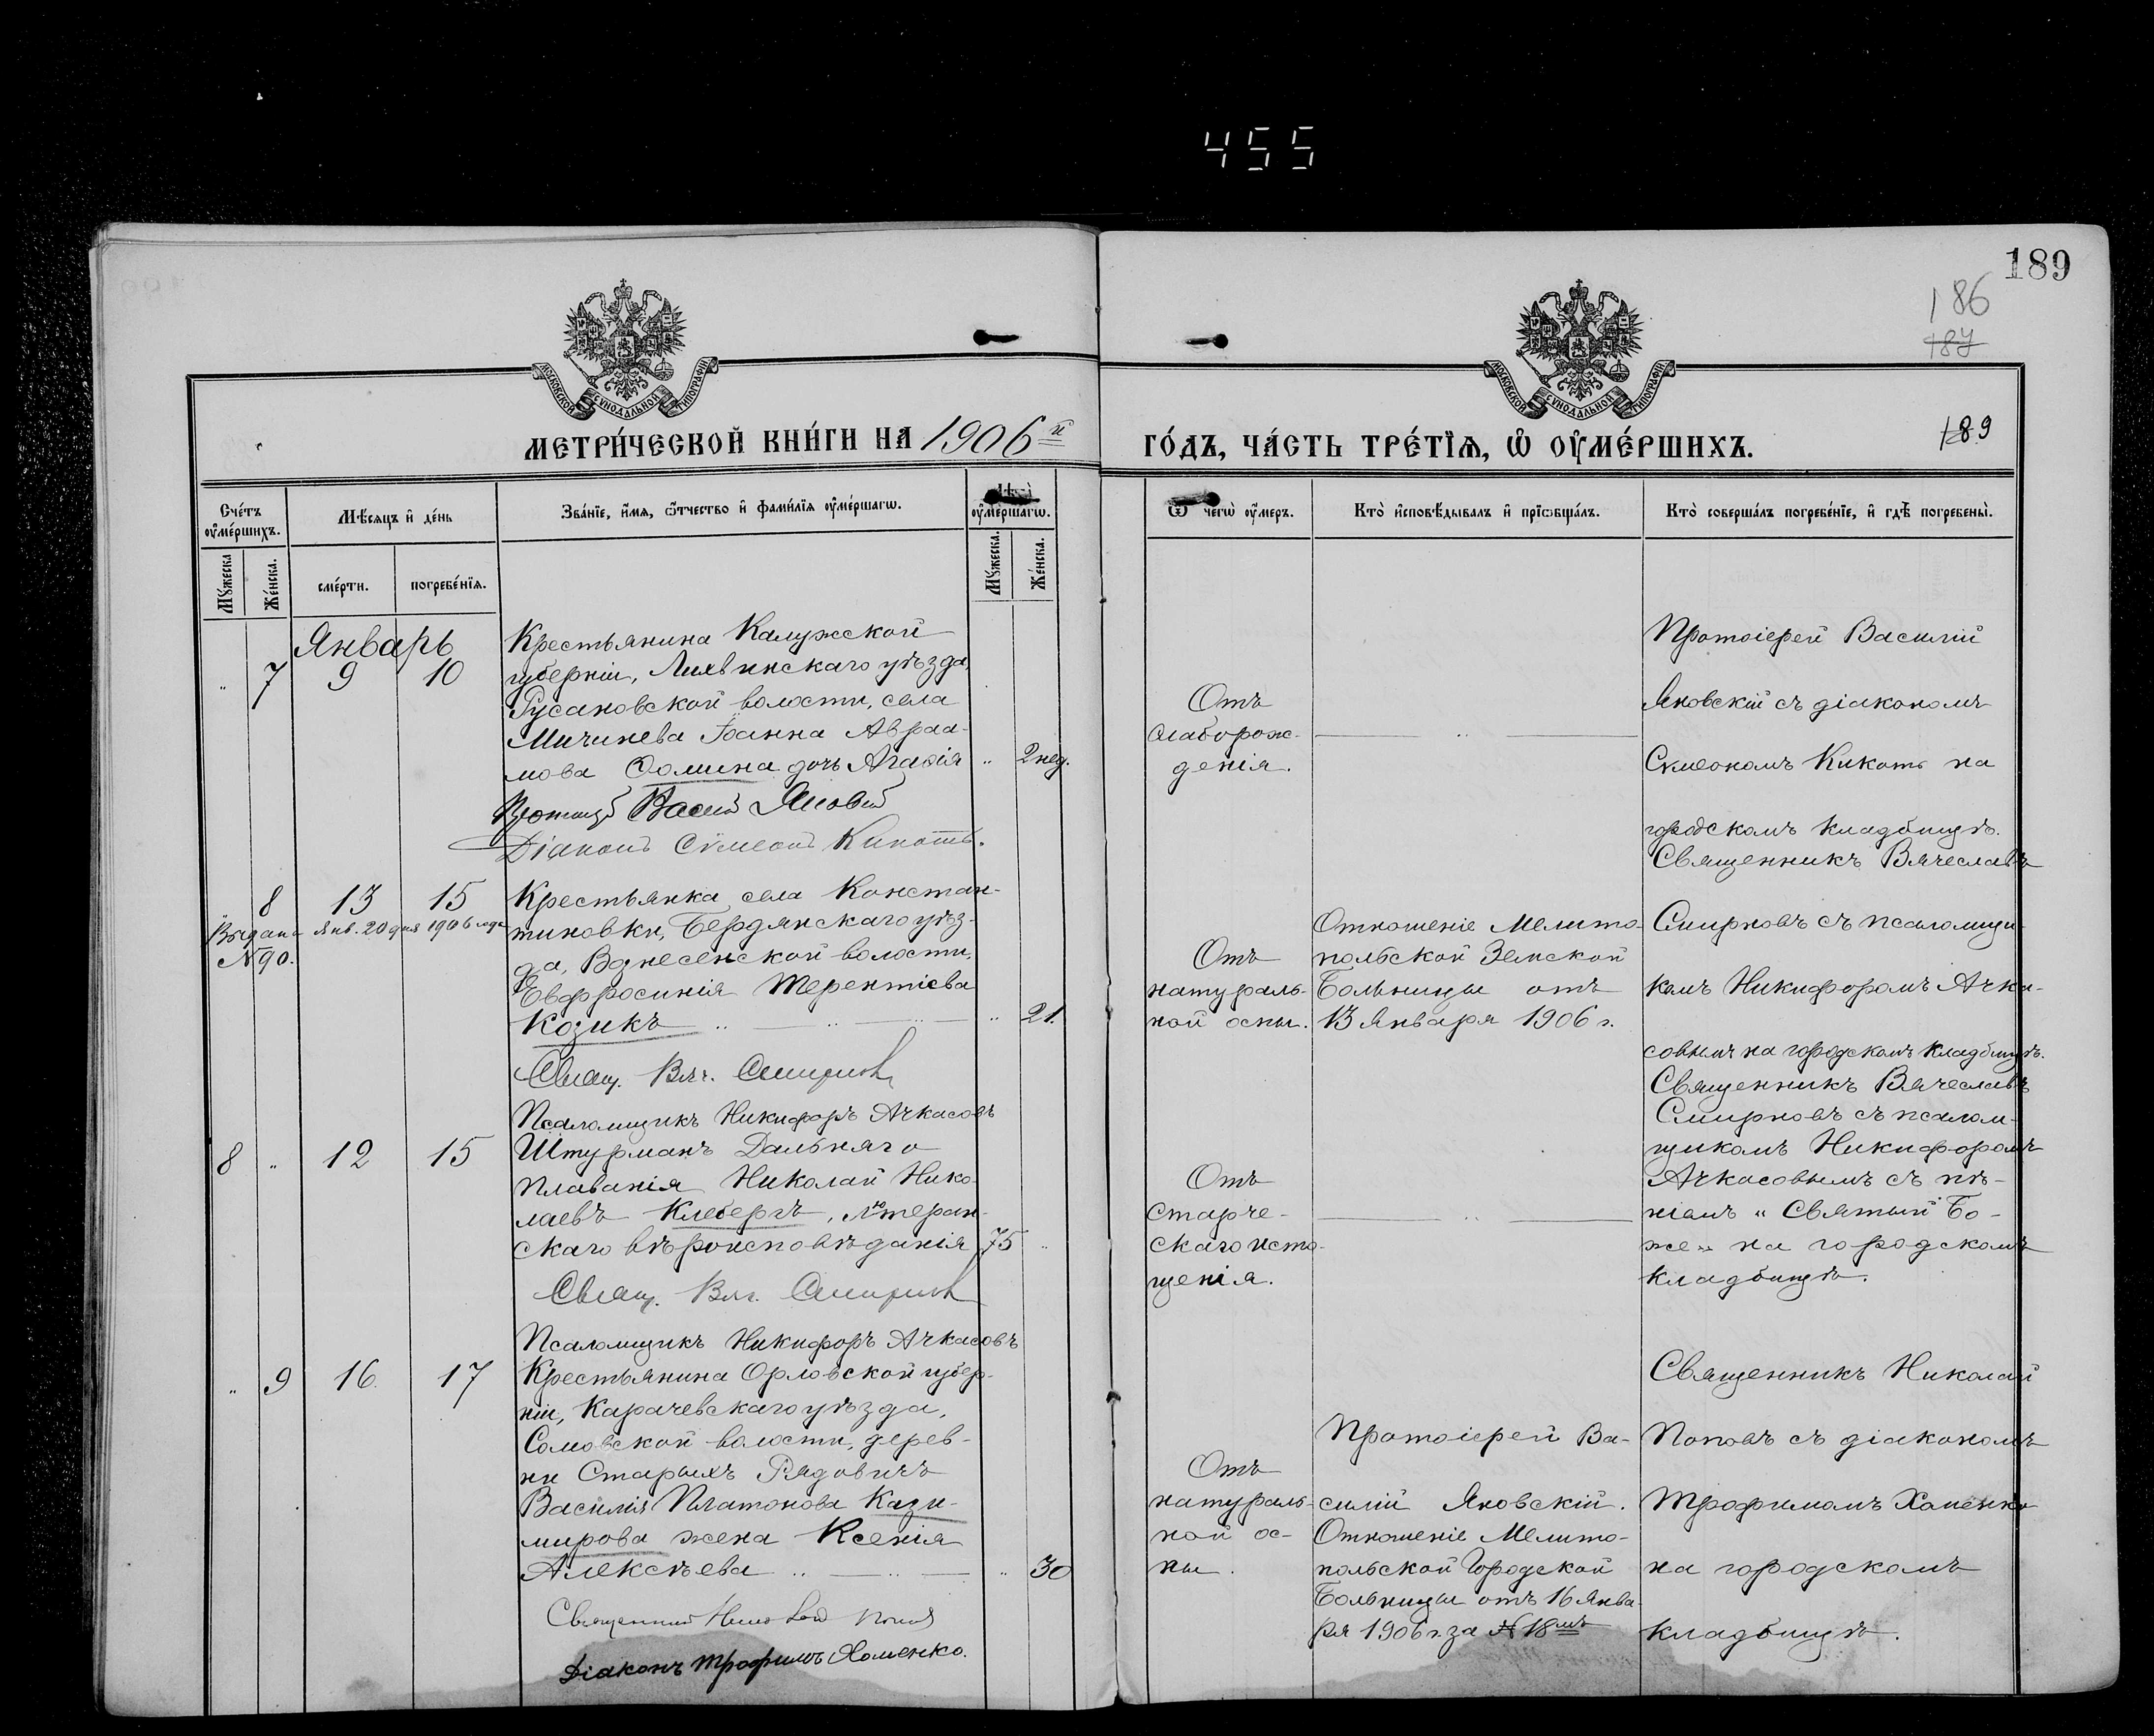 455
189
186
187
189
МОСКОВСКОЙ СѴНОДАЛЬНОЙ ТИПОГРАФІИ
МОСКОВСКОЙ СѴНОДАЛЬНОЙ ТИПОГРАФІИ
МЕТРИ́ЧЕСКОЙ КНИ́ГИ НА 1906й
ГО́ДЪ, ЧА́СТЬ ТРЕ́ТЇѦ, Ѡ҆ ОУ҆МЕ́РШИХЪ.
Сче́тъ оу҆ме́ршихъ.
Мѣ́сѧцъ и҆ де́нь
Зва́нїе, и҆́мѧ, ѻ҆́тчество и҆ фами́лїѧ оу҆ме́ршагѡ.
оу҆ме́ршагѡ.
Ѿ чегѡ̀ оу҆́меръ.
Кто̀ и҆сповѣ́дывалъ и҆ прїѡбща́лъ.
Кто̀ соверша́лъ погребе́нїе, и҆ гдѣ̀ погребены̀.
Мꙋ́жеска
Же́нска.
сме́рти.
погребе́нїѧ.
Мꙋ́жеска.
Же́нска.
Январь
„ 7 9 10
Крестьянина Калужской
губерніи, Лихвинскаго уѣзда,
Русановской волости, села
Мичинева Іоанна Авраа-
мова Ѳомина дочь Агаѳія „ 2 нед.
Діаконъ Сѵмеонъ Кикоть.
Отъ
слаборож-
денія.
Протоіерей Василій
Яновскій съ діакономъ
Сѵмеономъ Кикоть на
городскомъ кладбищѣ.
„ 8 13 15
Выдано Янв. 20 дня 1906 года
№90.
Крестьянка села Констан-
тиновки, Бердянскаго уѣз-
да, Вознесенской волости,
Евфросинія Терентіева
Козикъ „ 21.
Свящ. Вяч. Смирновъ
Псаломщикъ Никифоръ Ачкасовъ
Отъ
натураль-
ной оспы.
Отношеніе Мелито-
польской Земской
Больницы отъ
13 Января 1906 г.
Священникъ Вячеславъ
Смирновъ съ псаломщи-
комъ Никифоромъ Ачка-
совымъ на городскомъ кладбищѣ.
8 „ 12 15
Штурманъ Дальняго
Плаванія Николай Нико-
лаевъ Клебергъ, лютеран-
скаго вѣроисповѣданія 75 „
Свящ. Вяч. Смирновъ
Псаломщикъ Никифоръ Ачкасовъ
Отъ
старче-
скаго исто-
щенія.
Священникъ Вячеславъ
Смирновъ съ псалом-
щикомъ Никифоромъ
Ачкасовымъ съ пѣ-
ніемъ „Святый Бо-
же„ на городскомъ
кладбищѣ.
„ 9 16 17
Крестьянина Орловской губер-
ніи, Карачевскаго уѣзда,
Сомовской волости, дерев-
ни Старыхъ Рядовичъ
Василія Платонова Кази-
мирова жена Ксенія
Алексѣева „ 30
Діаконъ Трофимъ Хоменко.
Отъ
натураль-
ной ос-
пы.
Протоіерей Ва-
силій Яновскій.
Отношеніе Мелито-
польской Городской
Больницы отъ 16 Янва-
ря 1906 г. за № 18мъ
Священникъ Николай
Поповъ съ діакономъ
Трофимомъ Хоменко
на городскомъ
кладбищѣ.